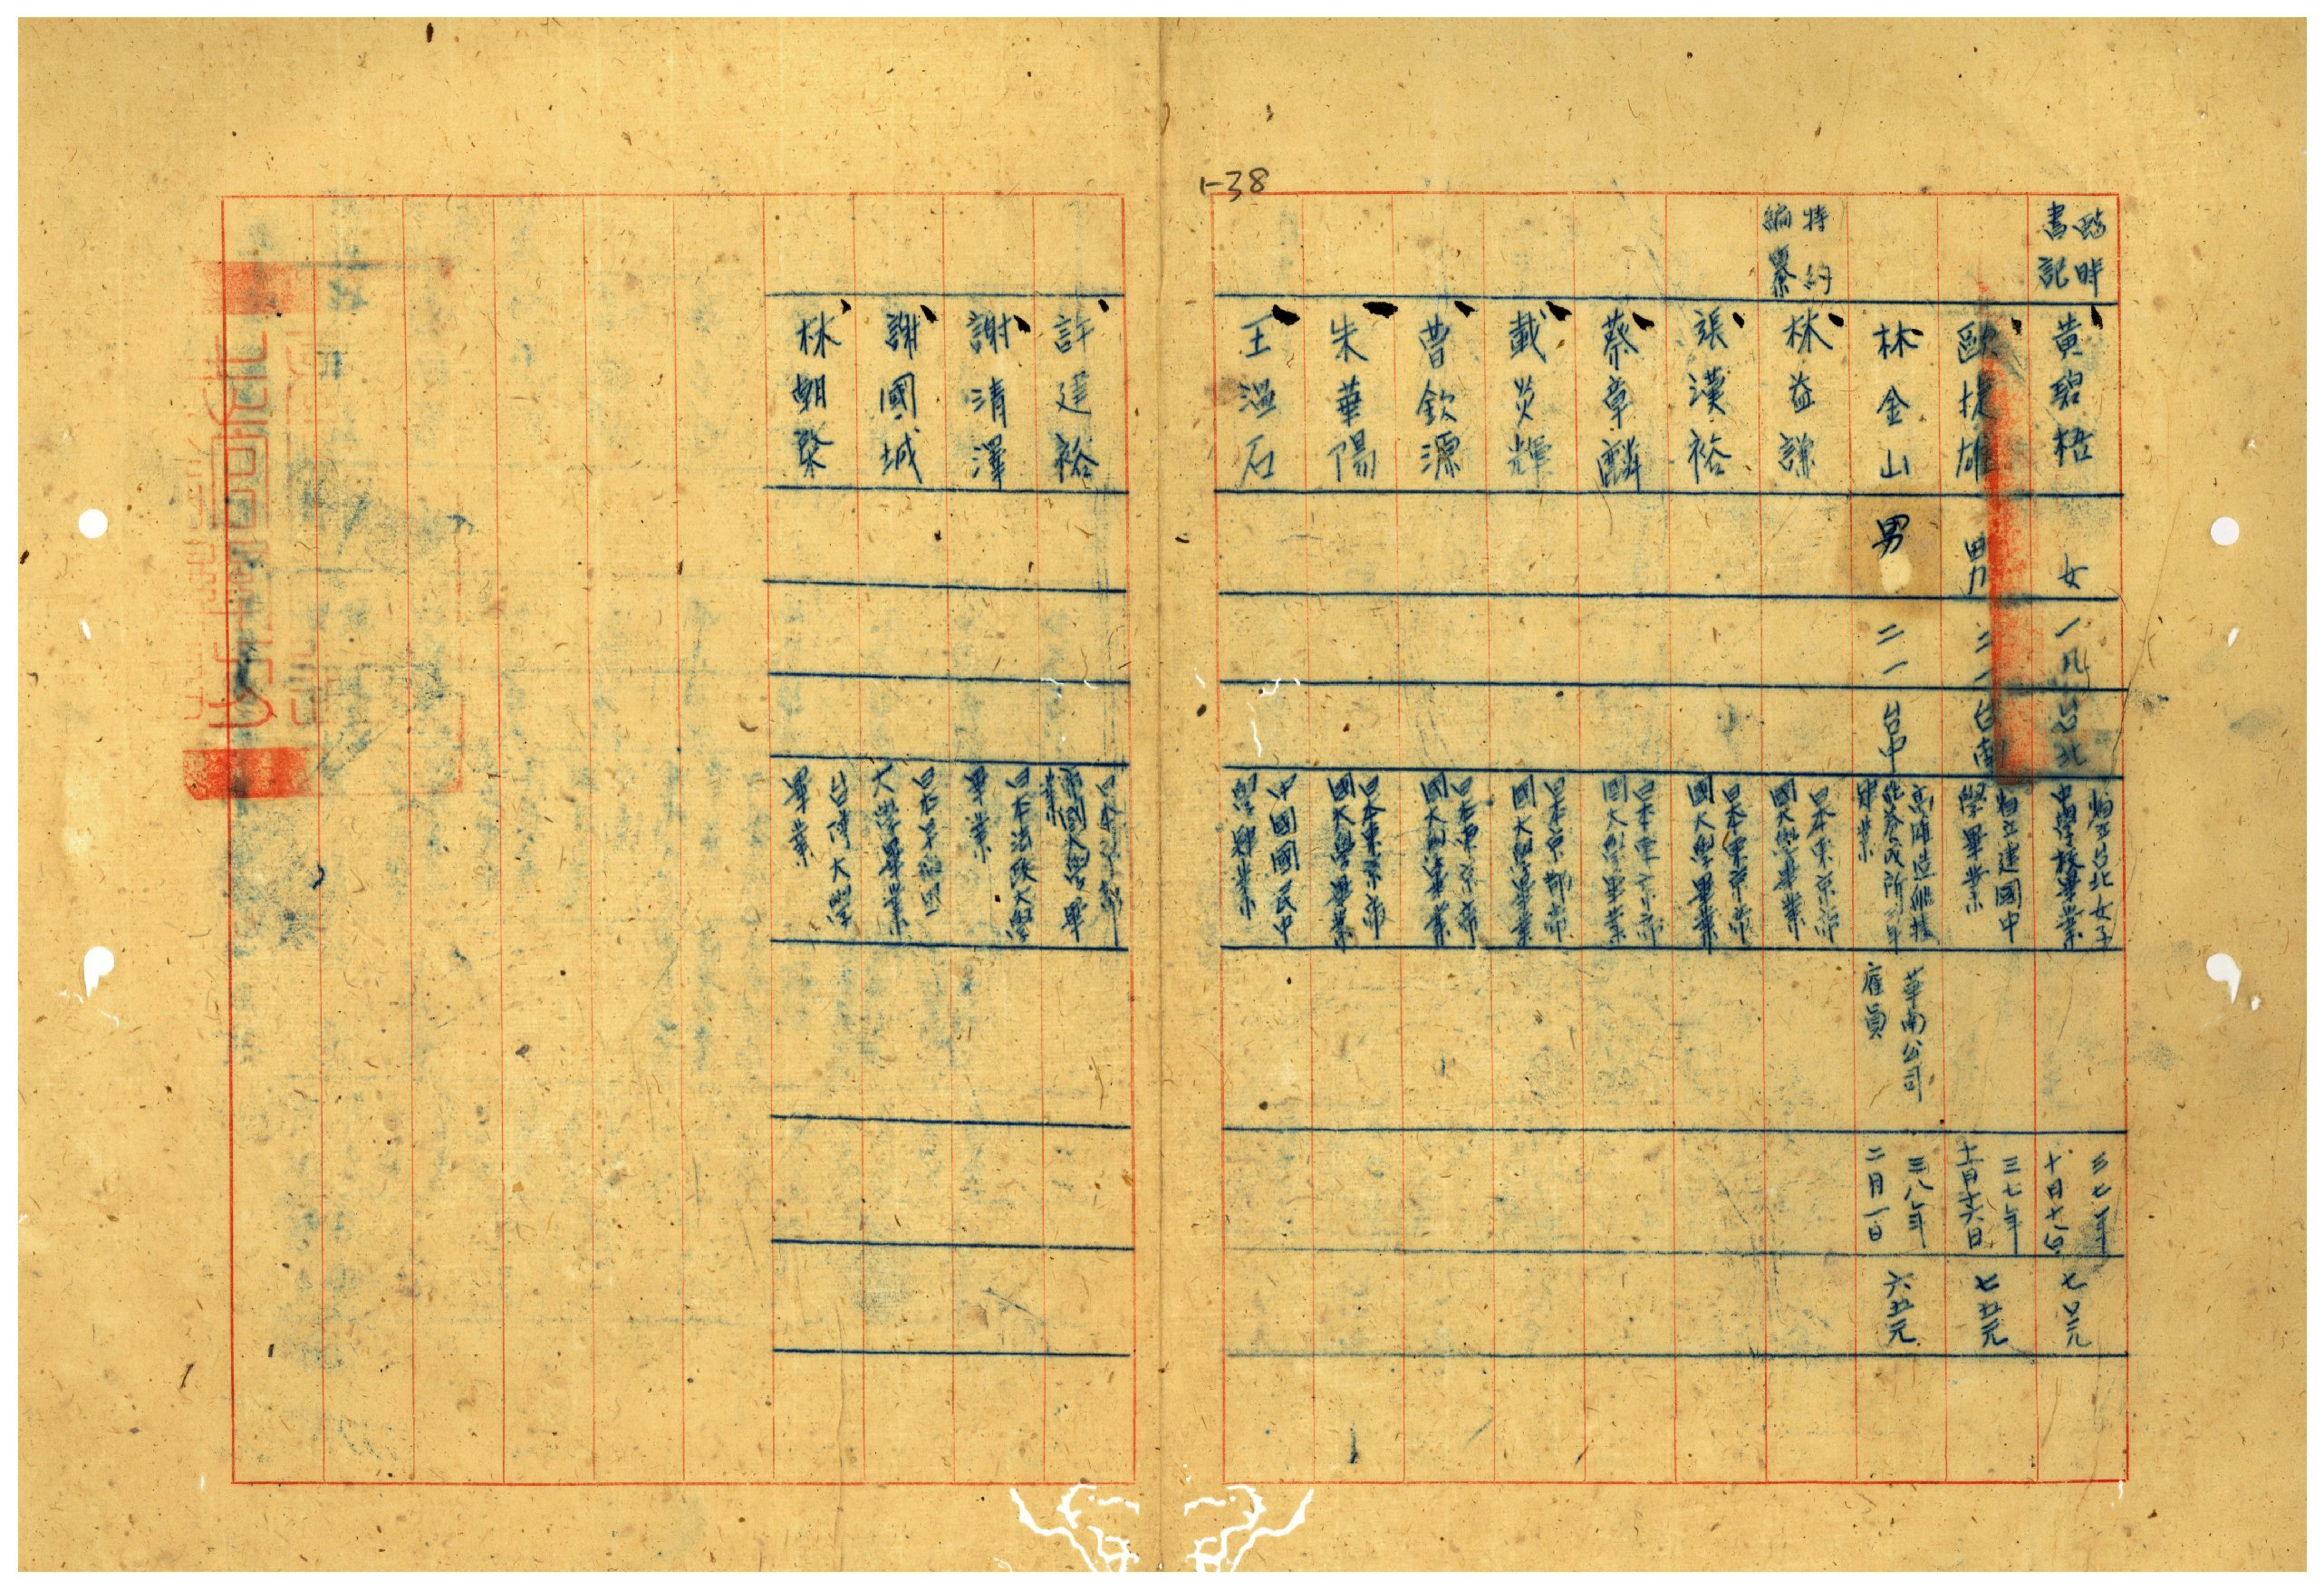 1-38
臨時
書記
黃碧梧
女
一九
台北
省立台北女子
中學校畢業
三七年
十月十八日
七〇元
歐捷雄
男
二一
台南
省立建國中
學畢業
三七年
十二月十六日
七五元
林金山
男
二一
台中
高雄造船技
術養成所三年
畢業
華南公司
雇員
三八年
二月一日
六五元
特約
編纂
林益謙
日本東京帝
國大學畢業
張漢裕
日本東京帝
國大學畢業
蔡章麟
日本東京帝
國大學畢業
戴炎輝
日本京都帝
國大學畢業
曹欽源
日本東京帝
國大學畢業
朱華陽
日本東京帝
國大學畢業
王溫石
中國國民中
學肄業
許建裕
日本京都
帝國大學畢
業
謝清澤
日本法政大學
畢業
謝國城
日本早稻田
大學畢業
林朝棨
台灣大學
畢業